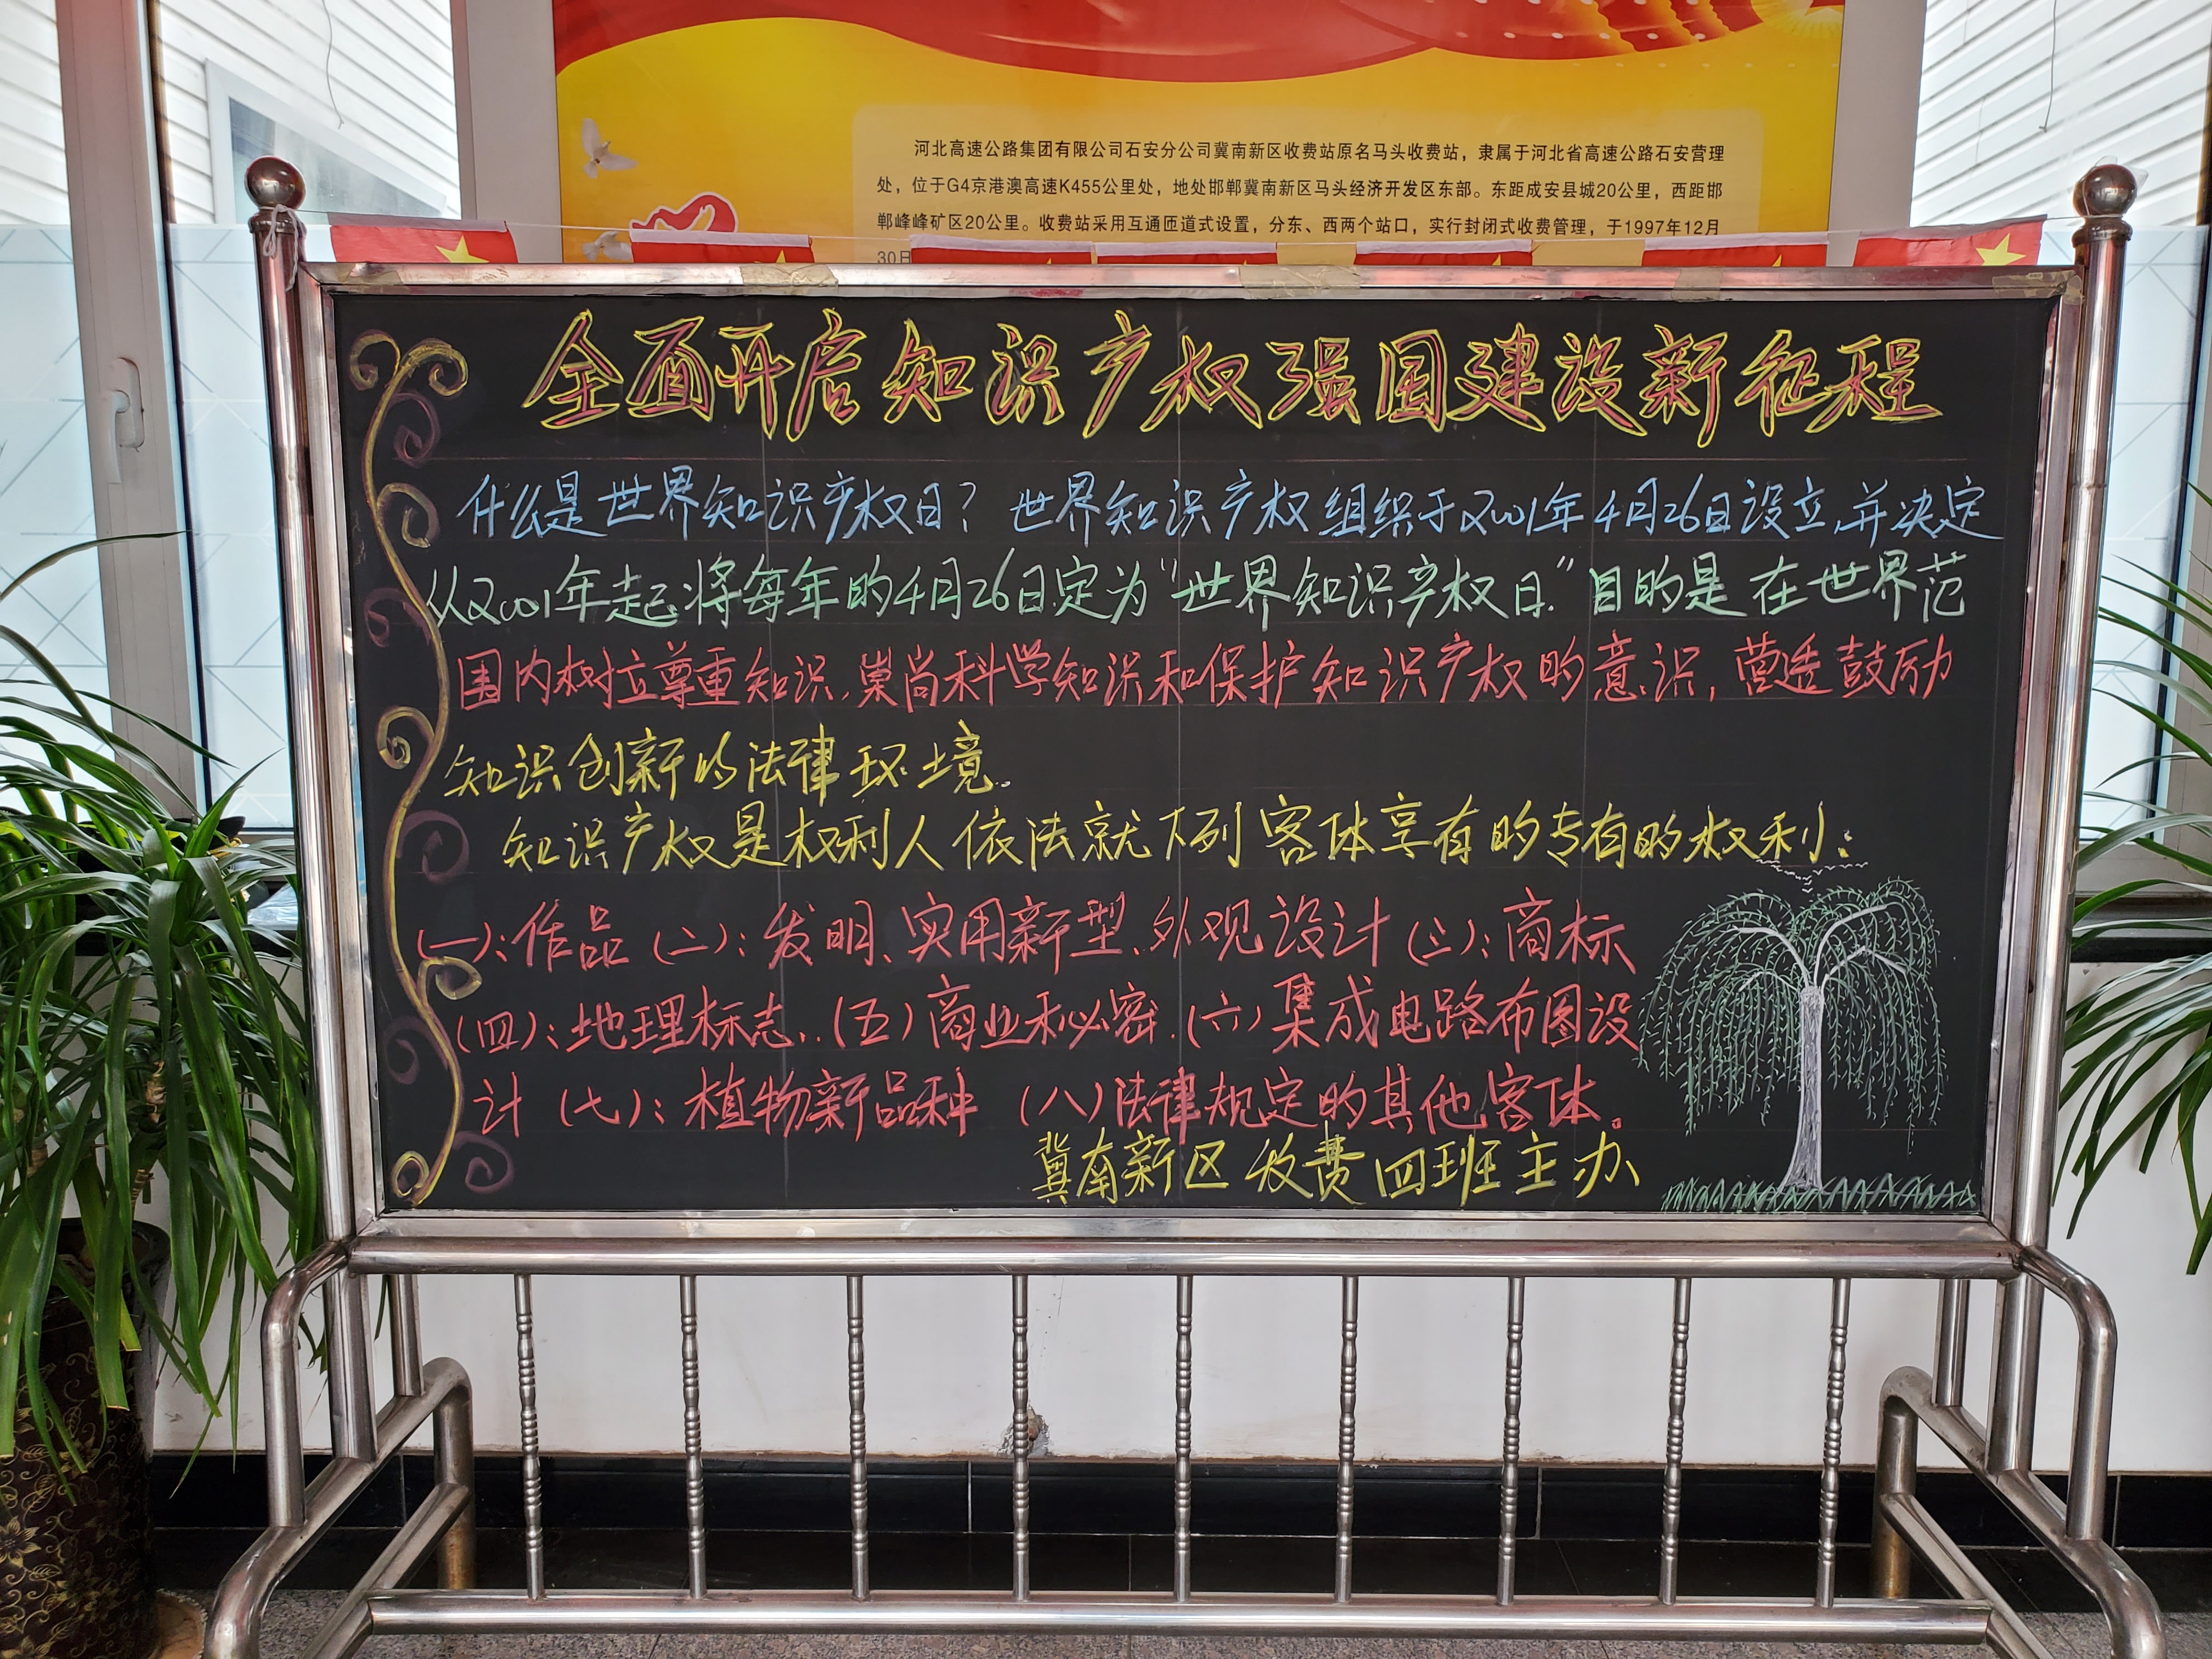 河北高速公路集团有限公司石安分公司冀南新区收费站原名马头收费站，隶属于河北省高速公路石安管理
处，位于G4京港澳高速K455公里处，地处邯郸冀南新区马头经济开发区东部。东距成安县城20公里，西距邯
郸峰峰矿区20公里。收费站采用互通匝道式设置，分东、西两个站口，实行封闭式收费管理，于1997年12月
30日
全面开启知识产权强国建设新征程
什么是世界知识产权日？世界知识产权组织于2001年4月26日设立，并决定
从2001年起将每年的4月26日定为“世界知识产权日.”目的是在世界范
围内树立尊重知识、崇尚科学知识和保护知识产权的意识，营造鼓励
知识创新的法律环境。
知识产权是权利人依法就下列客体享有的专有的权利：
(一)：作品(二)：发明、实用新型、外观设计(三)：商标
(四)：地理标志，.(五)商业秘密.(六)集成电路布图设
计(七)：植物新品种 (八)法律规定的其他客体。
冀南新区收费四班主办